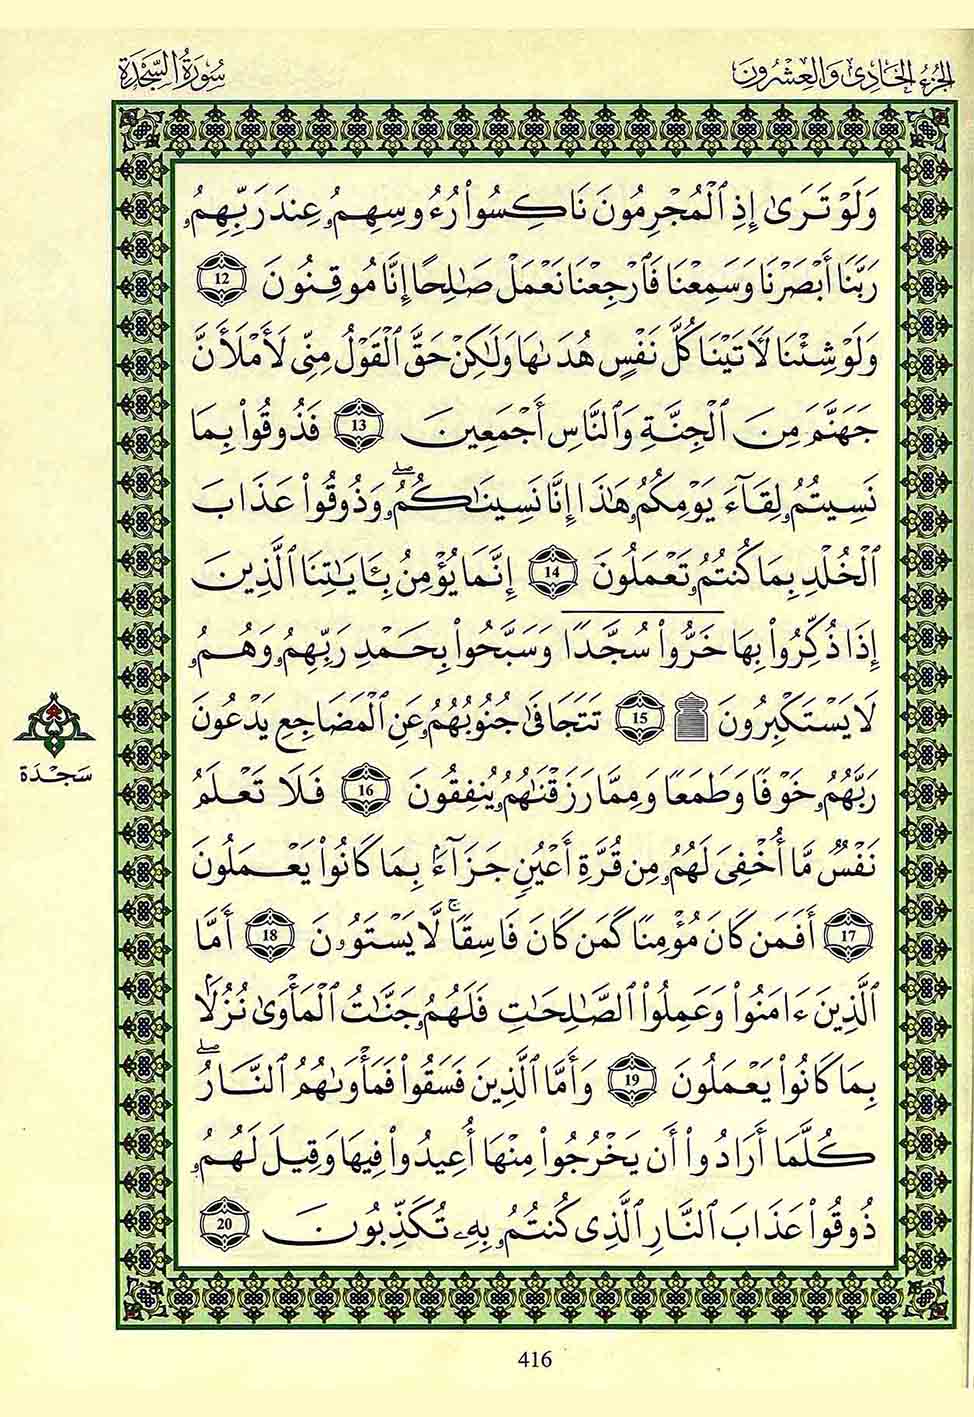 الجزء الحادي والعشرون
سُورَةُ السَّجْدَة
وَلَوْ تَرَىٰ إِذِ ٱلْمُجْرِمُونَ نَاكِسُوا۟ رُءُوسِهِمُۥ عِندَ رَبِّهِمُۥ
رَبَّنَا أَبْصَرْنَا وَسَمِعْنَا فَٱرْجِعْنَا نَعْمَلْ صَٰلِحًا إِنَّا مُوقِنُونَ 12
وَلَوْ شِئْنَا لَأٓتَيْنَا كُلَّ نَفْسٍ هُدَىٰهَا وَلَٰكِنْ حَقَّ ٱلْقَوْلُ مِنِّى لَأَمْلَأَنَّ
جَهَنَّمَ مِنَ ٱلْجِنَّةِ وَٱلنَّاسِ أَجْمَعِينَ 13 فَذُوقُوا۟ بِمَا
نَسِيتُمُۥ لِقَآءَ يَوْمِكُمُۥ هَٰذَا إِنَّا نَسِينَٰكُمُۥۖ وَذُوقُوا۟ عَذَابَ
ٱلْخُلْدِ بِمَا كُنتُمُۥ تَعْمَلُونَ 14 إِنَّمَا يُؤْمِنُ بِـَٔايَٰتِنَا ٱلَّذِينَ
إِذَا ذُكِّرُوا۟ بِهَا خَرُّوا۟ سُجَّدًا وَسَبَّحُوا۟ بِحَمْدِ رَبِّهِمُۥ وَهُمُۥ
لَا يَسْتَكْبِرُونَ ۩ 15 تَتَجَافَىٰ جُنُوبُهُمُۥ عَنِ ٱلْمَضَاجِعِ يَدْعُونَ
رَبَّهُمُۥ خَوْفًا وَطَمَعًا وَمِمَّا رَزَقْنَٰهُمُۥ يُنفِقُونَ 16 فَلَا تَعْلَمُ
نَفْسٌ مَّا أُخْفِىَ لَهُمُۥ مِن قُرَّةِ أَعْيُنٍ جَزَآءًۢ بِمَا كَانُوا۟ يَعْمَلُونَ
17 أَفَمَن كَانَ مُؤْمِنًا كَمَن كَانَ فَاسِقًاۚ لَّا يَسْتَوُۥنَ 18 أَمَّا
ٱلَّذِينَ ءَامَنُوا۟ وَعَمِلُوا۟ ٱلصَّٰلِحَٰتِ فَلَهُمُۥ جَنَّٰتُ ٱلْمَأْوَىٰ نُزُلًۢا
بِمَا كَانُوا۟ يَعْمَلُونَ 19 وَأَمَّا ٱلَّذِينَ فَسَقُوا۟ فَمَأْوَىٰهُمُ ٱلنَّارُۖ
كُلَّمَا أَرَادُوا۟ أَن يَخْرُجُوا۟ مِنْهَا أُعِيدُوا۟ فِيهَا وَقِيلَ لَهُمُۥ
ذُوقُوا۟ عَذَابَ ٱلنَّارِ ٱلَّذِى كُنتُمُۥ بِهِۦ تُكَذِّبُونَ 20
سَجْدَة
416